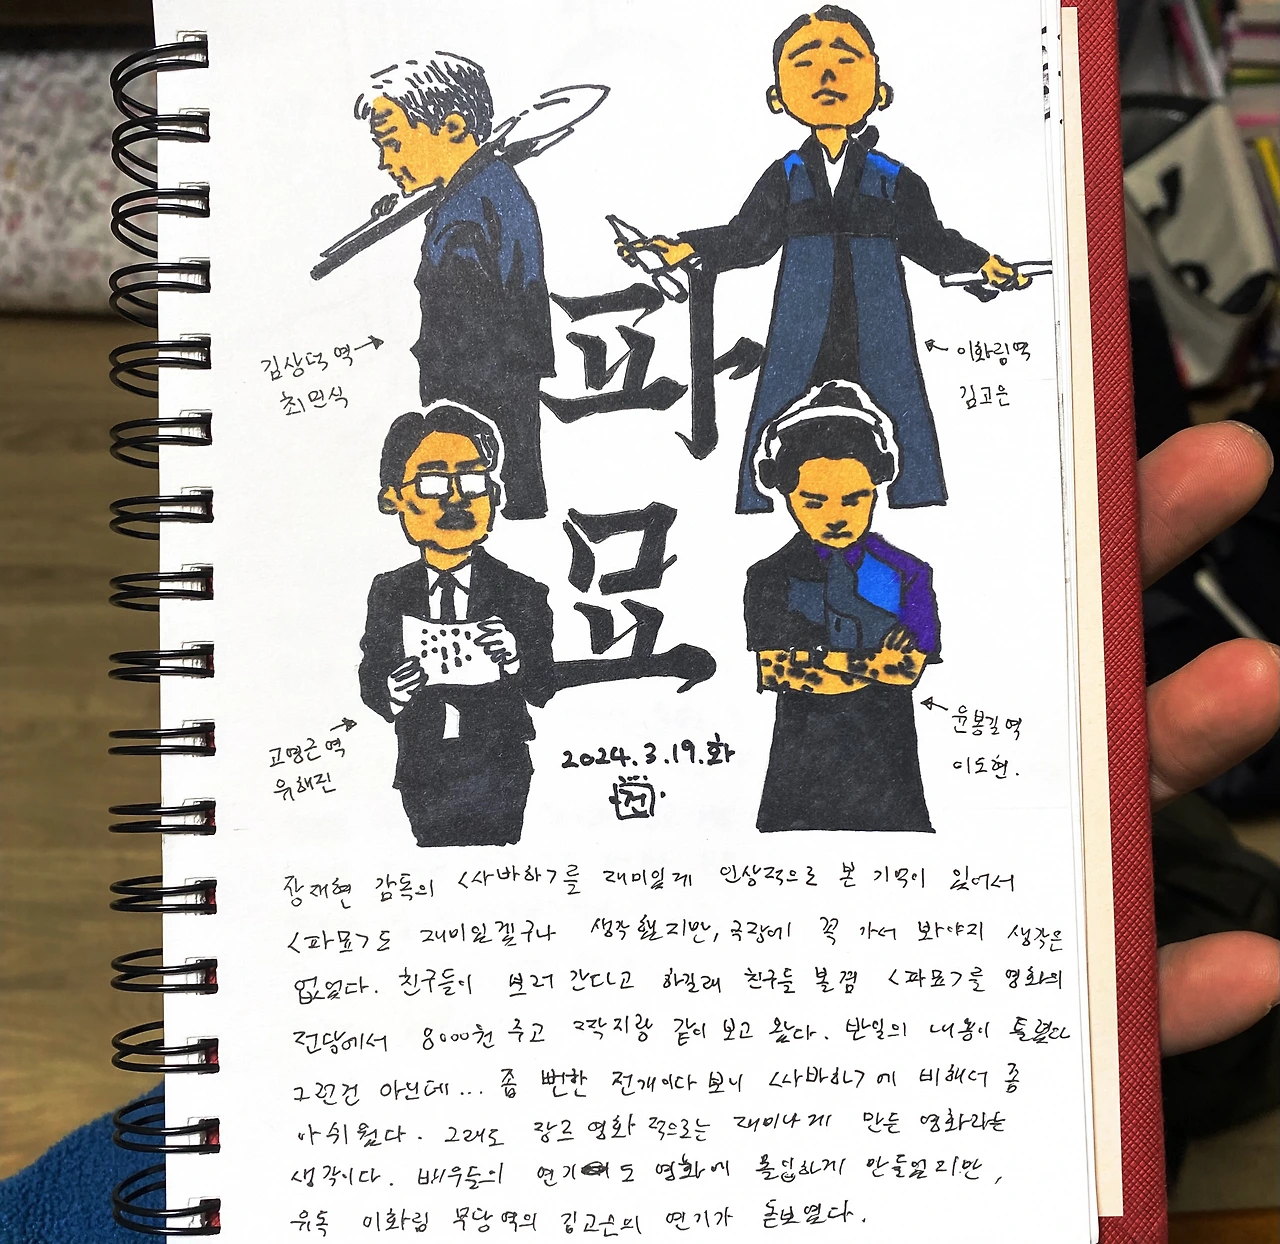 파
묘
김상덕 역
최민식
이화림 역
김고은
고영근 역
유해진
윤봉길 역
이도현.
2024.3.19.화
건
장재현 감독의 <사바하>를 재미있게 인상적으로 본 기억이 있어서
<파묘>도 재미있겠구나 생각했지만, 극장에 꼭 가서 봐야지 생각은
없었다. 친구들이 보러 간다고 하길래 친구들 볼 겸 <파묘>를 영화의
전당에서 8000원 주고 짝지랑 같이 보고 왔다. 반일의 내용이
그런건 아닌데... 좀 뻔한 전개이다 보니 <사바하>에 비해서 좀
아쉬웠다. 그래도 장르 영화 적으로는 재미나게 만든 영화라는
생각이다. 배우들의 연기도 영화에 몰입하게 만들었지만,
유독 이화림 무당역의 김고은의 연기가 돋보였다.